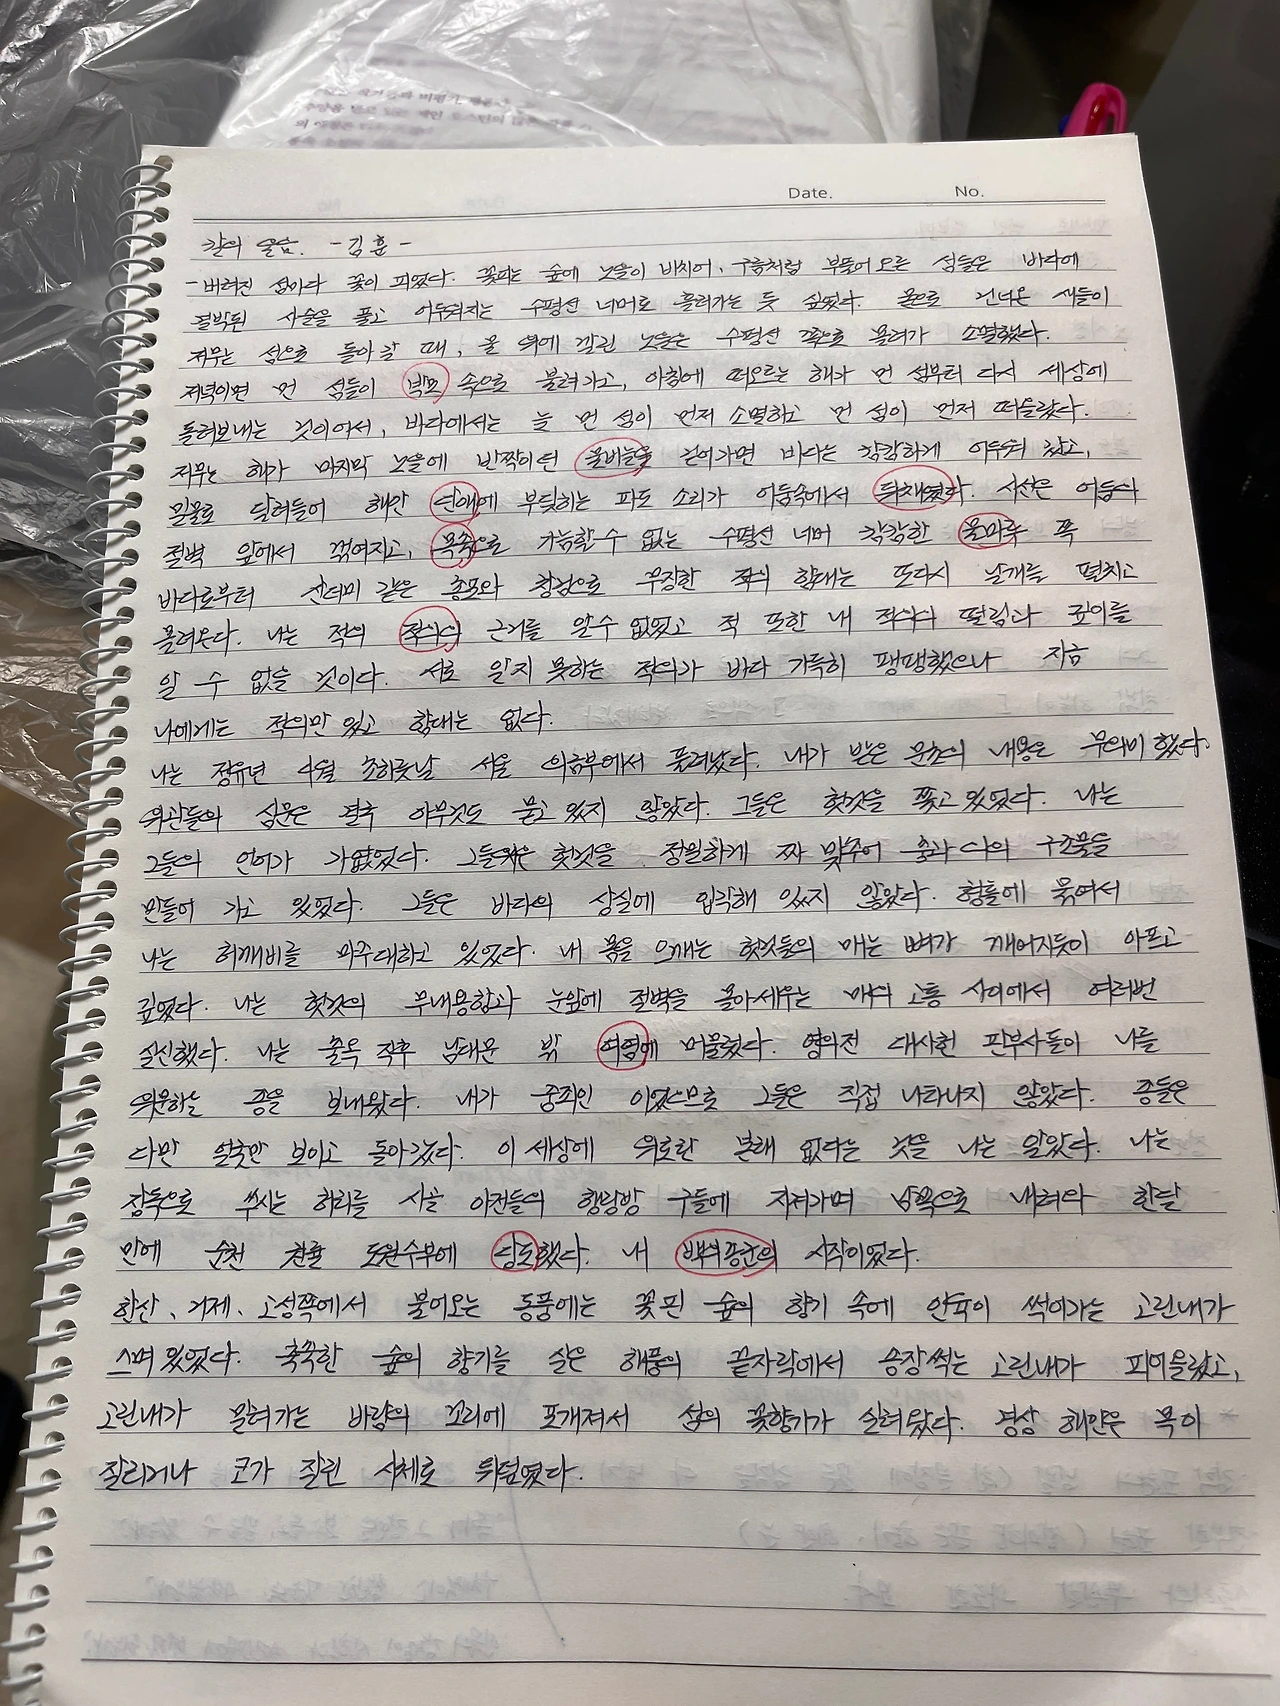 Date. No.
칼의 울음. -김훈-
- 버려진 섬마다 꽃이 피었다. 꽃피는 숲에 노을이 비치어, 구름처럼 부풀어오른 섬들은 바다에
결박된 사슬을 풀고 어두워지는 수평선 너머로 흘러가는 듯 싶었다. 뭍으로 건너온 새들이
저무는 섬으로 돌아갈 때, 물 위에 깔린 노을은 수평선 쪽으로 몰려가 소멸했다.
저녁이면 먼 섬들이 박모 속으로 불려가고, 아침에 떠오르는 해가 먼 섬부터 다시 세상에
돌려보내는 것이어서, 바다에서는 늘 먼 섬이 먼저 소멸하고 먼 섬이 먼저 떠올랐다.
저무는 해가 마지막 노을에 반짝이던 물비늘을 걷어가면 바다는 캄캄하게 어두워 갔고,
밀물로 달려들어 해안 연애에 부딪히는 파도 소리가 어둠속에서 뒤채였다. 시선은 어둠의
절벽 앞에서 꺾여지고, 목측으로 가늠할 수 없는 수평선 너머 캄캄한 물마루 쪽
바다로부터 산더미 같은 총포와 창검으로 무장한 적의 함대는 또다시 날개를 펼치고
몰려온다. 나는 적의 적의의 근거를 알 수 없었고 적 또한 내 적의의 떨림과 깊이를
알 수 없을 것이다. 서로 알지 못하는 적의가 바다 가득히 팽팽했으나 지금
나에게는 적의만 있고 함대는 없다.
나는 정유년 4월 초하룻날 서울 의금부에서 풀려났다. 내가 받은 문초의 내용은 무의미했다.
위관들의 심문은 결국 아무것도 묻고 있지 않았다. 그들은 헛것을 쫓고 있었다. 나는
그들의 언어가 가엾었다. 그들은 헛것을 정밀하게 짜 맞추어 충과 의의 구조물을
만들어 가고 있었다. 그들은 바다의 상실에 입각해 있지 않았다. 형틀에 묶여서
나는 허깨비를 마주대하고 있었다. 내 몸을 으깨는 헛것들의 매는 뼈가 깨어지듯이 아프고
깊었다. 나는 헛것의 무내용함과 눈앞에 절벽을 몰아세우는 매의 고통 사이에서 여러번
실신했다. 나는 출옥 직후 남대문 밖 여염에 머물렀다. 영의전 대사헌 판부사들이 나를
위문하는 종을 보내왔다. 내가 중죄인 이었으므로 그들은 직접 나타나지 않았다. 종들은
다만 얼굴만 보이고 돌아갔다. 이 세상에 위로란 본래 없다는 것을 나는 알았다. 나는
장독으로 쑤시는 허리를 시골 아전들의 행랑방 구들에 지져가며 남쪽으로 내려와 한달
만에 순천 권율 도원수부에 당도했다. 내 백의종군의 시작이었다.
한산, 거제, 고성쪽에서 불어오는 동풍에는 꽃핀 숲의 향기 속에 인육이 썩어가는 고린내가
스며 있었다. 축축한 숲의 향기를 실은 해풍의 끝자락에서 송장 썩는 고린내가 피어올랐고,
고린내가 밀려가는 바람의 꼬리에 포개져서 섬의 꽃향기가 실려왔다. 경상 해안은 목이
잘리거나 코가 잘린 시체로 뒤덮였다.